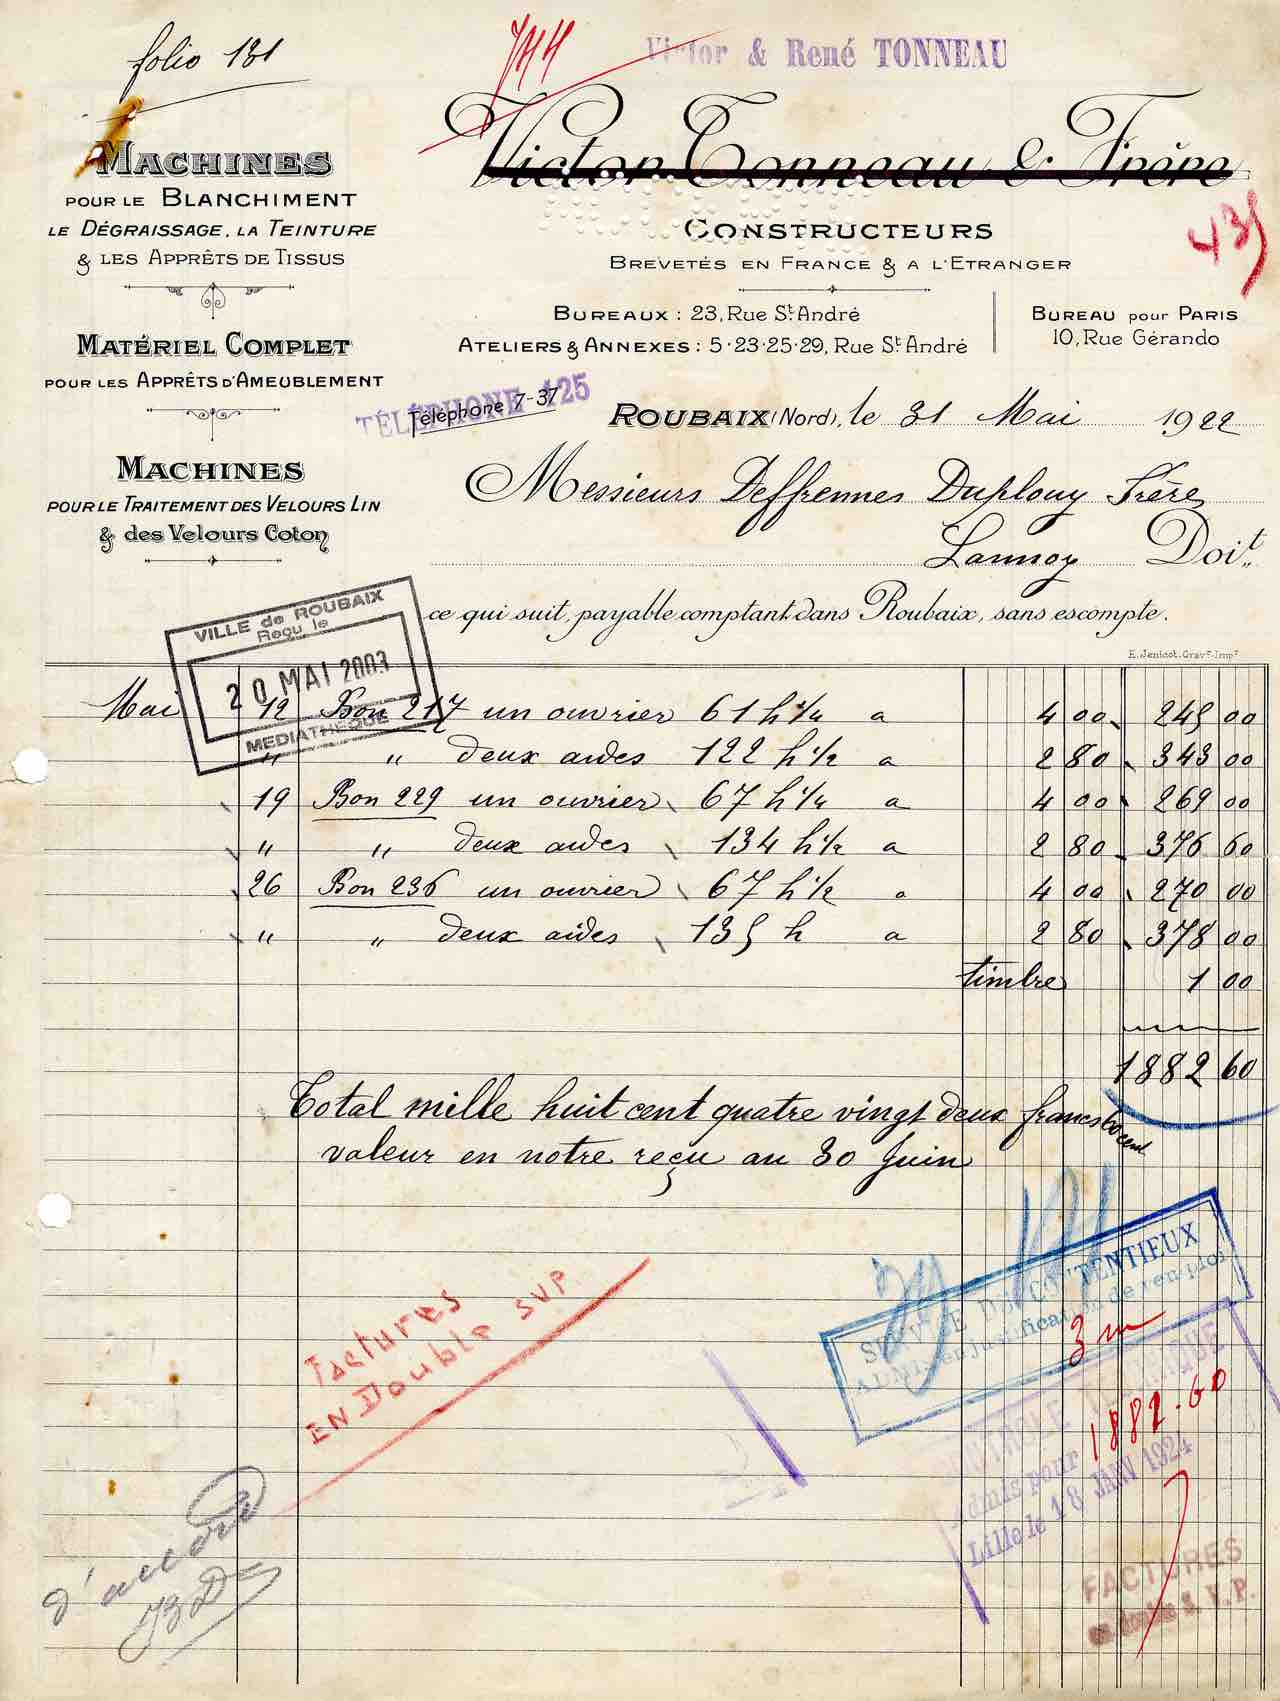 folio 131
Victor & René TONNEAU
Victor Tonneau & Frère
CONSTRUCTEURS
BREVETÉS EN FRANCE & A L'ETRANGER
BUREAUX : 23, Rue St. André
ATELIERS & ANNEXES : 5-23-25-29, Rue St. André
BUREAU pour PARIS
10, Rue Gérando
435
MACHINES
POUR LE BLANCHIMENT
LE DÉGRAISSAGE, LA TEINTURE
& LES APPRÊTS DE TISSUS
MATÉRIEL COMPLET
POUR LES APPRÊTS D'AMEUBLEMENT
MACHINES
POUR LE TRAITEMENT DES VELOURS LIN
& des Velours Coton
Téléphone 7-37
TÉLÉPHONE 125
ROUBAIX (Nord), le 31 Mai 1922
Messieurs Deffrennes Duplouy Frère
Lannoy Doit
ce qui suit, payable comptant dans Roubaix, sans escompte.
E. Jenicot. Gravr-Impr
VILLE de ROUBAIX
Reçu le
20 MAI 2003
MEDIATHEQUE
Mai 12 Bon 217 un ouvrier 61 h 1/4 a 4 00 245 00
" " deux aides 122 h 1/2 a 2 80 343 00
19 Bon 229 un ouvrier 67 h 1/4 a 4 00 269 00
" " deux aides 134 h 1/2 a 2 80 376 60
26 Bon 236 un ouvrier 67 h 1/2 a 4 00 270 00
" " deux aides 135 h a 2 80 378 00
timbre 1 00
1882 60
Total mille huit cent quatre vingt deux francs 60 cent
valeur en notre reçu au 30 Juin
Factures
EN Double SVP
SERVICE DU CONTENTIEUX
Admis en justification de remploi
3 m
CONTROLE
Admis pour 1882.60
Lille le 18 JANV 1924
FACTURES
en double S. V. P.
d'accord